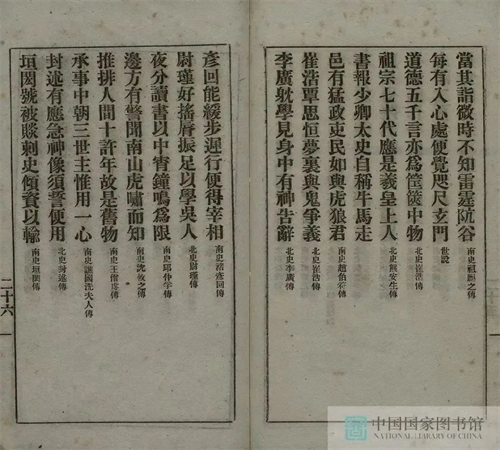 當其詣微時不知雷霆阬谷 南史祖沖之傳
每有入心處便覺咫尺玄門 世說
道德五千言亦為筐篋中物 北史崔浩傳
祖宗七十代應是羲皇上人 北史熊安生傳
書報少卿太史自稱牛馬走
邑有猛政吏民如與虎狼君 南史趙伯符傳
崔浩覃思恒夢裏與鬼爭義 北史崔浩傳
李廣躭學見身中有神告辭 北史李廣傳
彥回能緩步遲行便得宰相 南史褚彥回傳
尉瑾好搖脣振足以學吳人 北史尉瑾傳
夜分讀書以中宵鐘鳴為限 南史邱仲孚傳
邊方有警聞南山虎嘯而知 南史沈攸之傳
推排人間十許年故是舊物 南史王僧虔傳
承事中朝三世主惟用一心 南史譙國洗夫人傳
封述有應急神像須誓便用 北史封述傳
垣閎號被賧刺史傾資以輸 南史垣閎傳
二十六
中国国家图书馆
NATIONAL LIBRARY OF CHINA